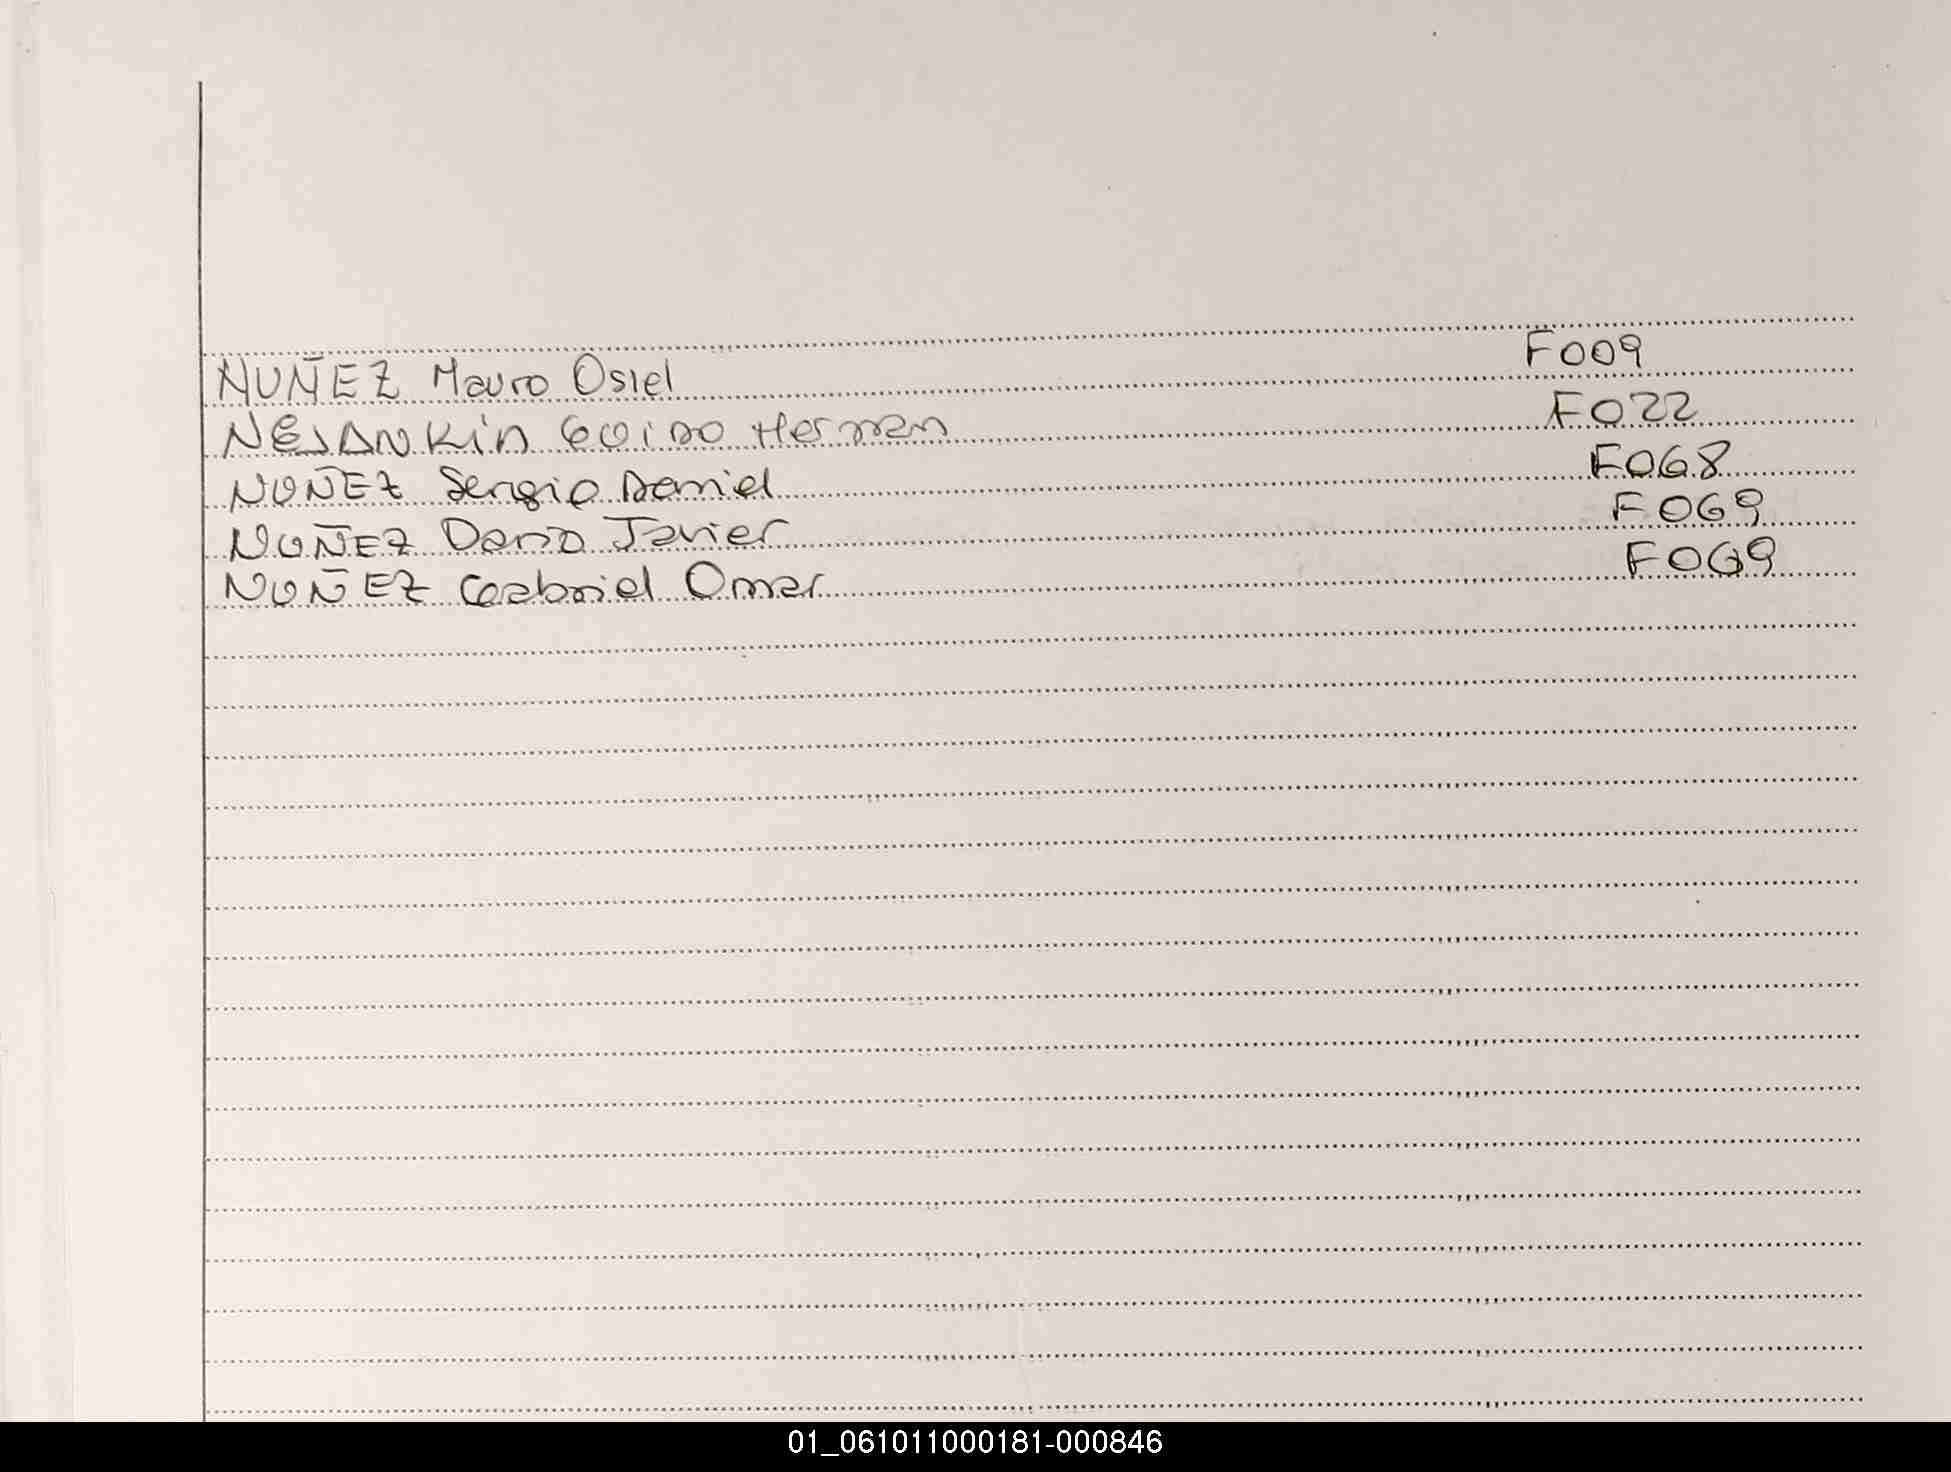 NUÑEZ Mauro Osiel F009
NEJANKIN GUIDO Hernan F022
NUÑEZ Sergio Daniel F068
NUÑEZ Dario Javier F069
NUÑEZ Gabriel Omar F069
01_061011000181-000846